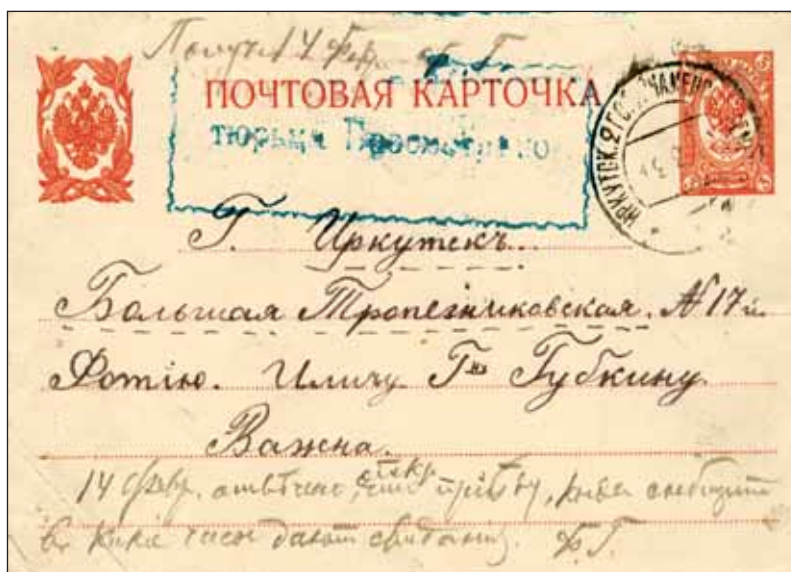 Получ 14 Фев. Ф. Г.
ПОЧТОВАЯ КАРТОЧКА
тюрьма Просмотрено
ИРКУТСК. 2 ГОР.
Г. Иркутскъ.
Большая Трапезниковская. № 17й.
Фотію. Иличу. Гну Губкину.
Важна.
14 февр. отвѣчено,
въ какіе часы дают свиданія. Ф. Г.